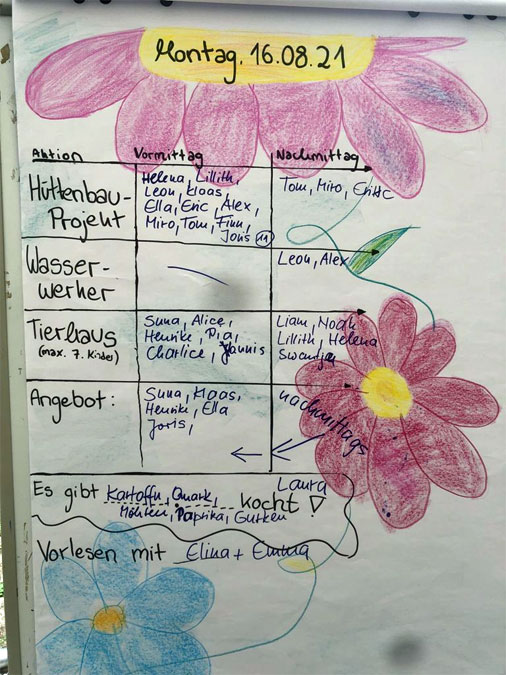 Montag, 16.08.21
Aktion Vormittag Nachmittag
Hüttenbau-
Projekt
Helena, Lillith,
Leon, Klaas,
Ella, Eric, Alex,
Miro, Tom, Finn,
Joris 11
Tom, Miro, Eric
Wasser-
werker
Leon, Alex
Tierhaus
(max. 7. Kinder)
Suna, Alice,
Henrike, Pia,
Charlice, Jannis
Liam, Noah
Lillith, Helena
Swantja
Angebot:
Suna, Klaas,
Henrike, Ella
Joris,
nachmittags
Es gibt Kartoffn, Quark,
Möhren, Paprika, Gurken
Laura
kocht!
Vorlesen mit Elina + Emma